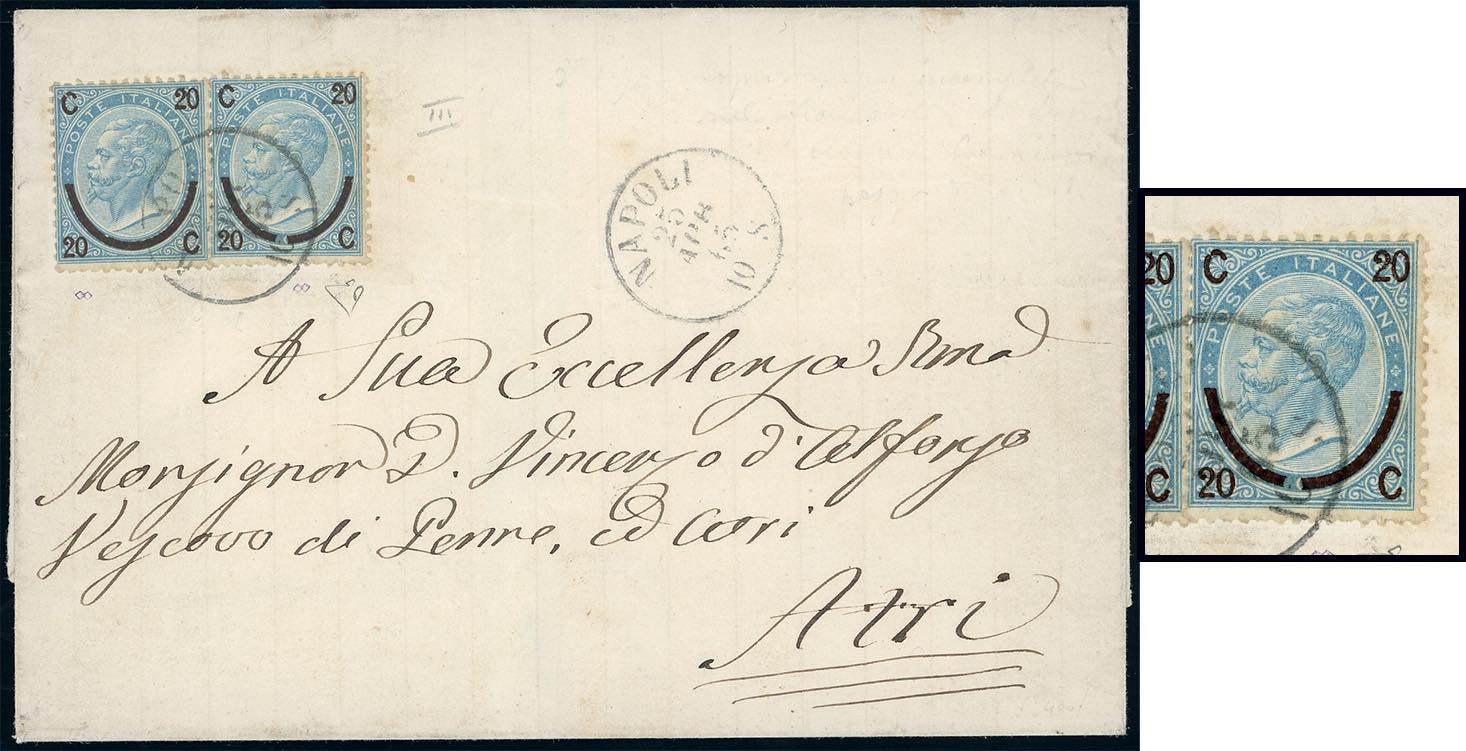 C 20
POSTE ITALIANE
20 C
C 20
POSTE ITALIANE
20 C
III
NAPOLI
25
APR
65
10 S
A Sua Eccellenza Rma
Monsignor D. Vincenzo d'Alfonso
Vescovo di Penne, ed Atri
Atri
20
C
C 20
POSTE ITALIANE
20 C